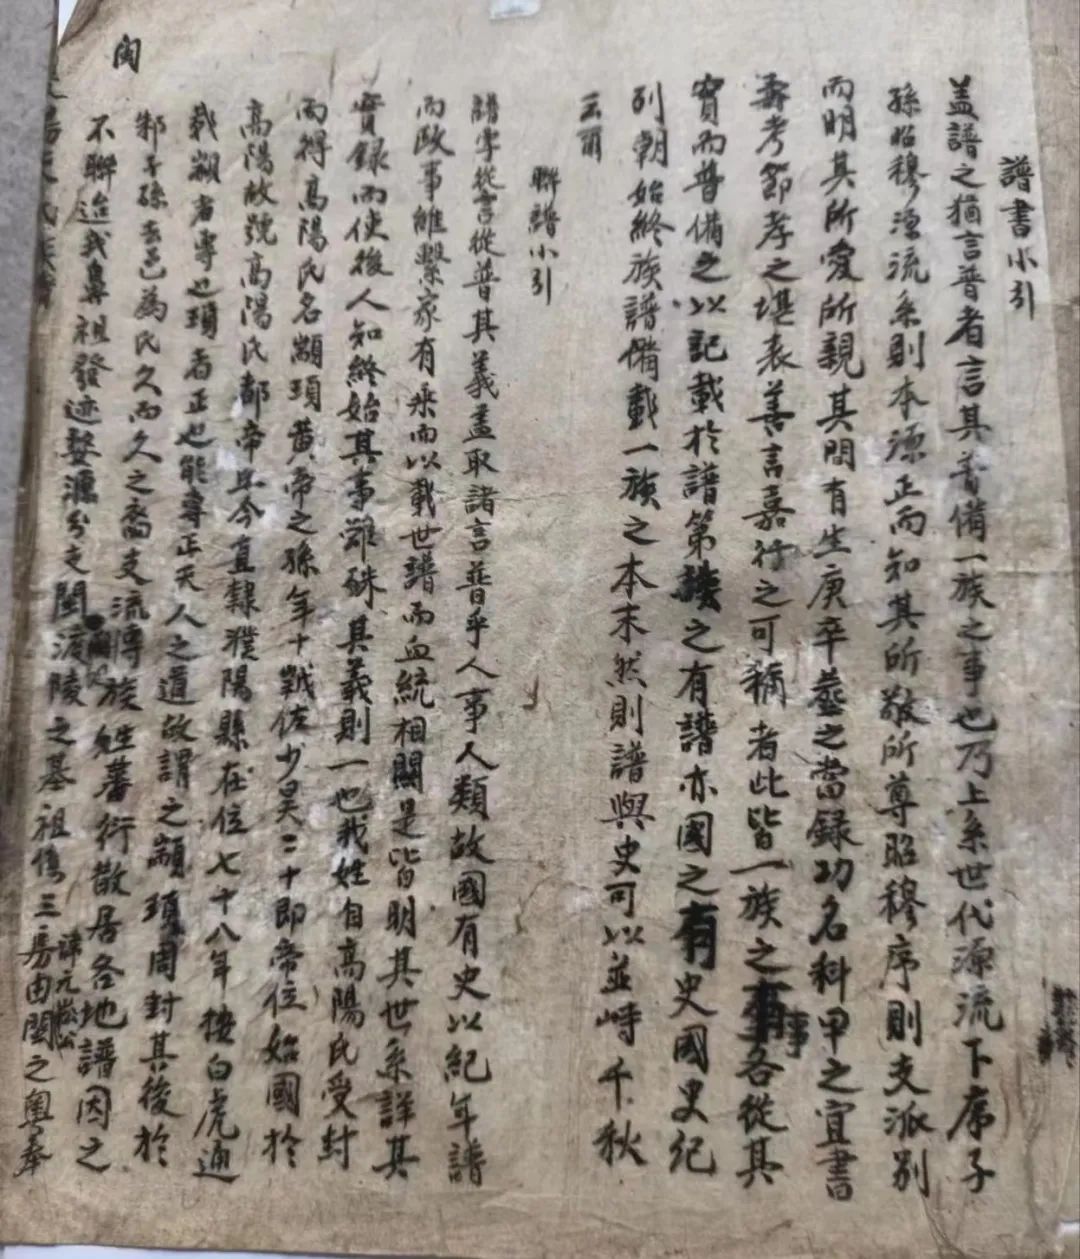 譜書小引
盖譜之猶言普者言其普備一族之事也乃上系世代源流下序子
孫昭穆源流系則本源正而知其所敬所尊昭穆序則支派别
而明其所愛所親其間有生庚卒塟之當録功名科甲之宜書
壽考節孝之堪表善言嘉行之可稱者此皆一族之事各從其
實而普備之以記載於譜第族之有譜亦國之有史國史紀
列朝始終族譜備載一族之本末然則譜與史可以並峙千秋
云爾
聯譜小引
譜字從言從普其義盖取諸言普乎人事人類故國有史以紀年譜
而政事維繫家有乘而以載世譜而血統相關是皆明其世系詳其
實錄而使後人知終始其事雖殊其義則一也我姓自高陽氏受封
而得高陽氏名顓頊黄帝之孫年十 佐少昊二十即帝位始國於
高陽故號高陽氏都帝丘今直隸濮陽縣在位七十八年 白虎通
義顓者專也頊者正也能專正天人之道故謂之顓頊周封其後於
邾子孫去邑為氏久而久之裔支流 族姓蕃衍散居各地譜因之
不聯迨我鼻祖發迹婺源分支閩 渡陵之基祖 諱元崧公 三房由閩之粵奉
閩